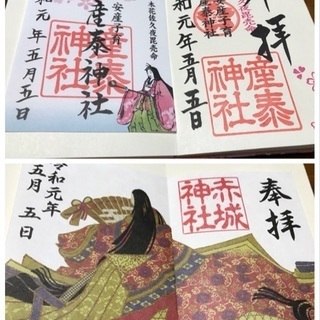 拝
産泰
神社
和元年五月五日
木花佐久夜毘売命
安産子育
産泰神社
産泰
神社
和元年五月五日
奉拝
赤城
神社
令和元年
五月五日